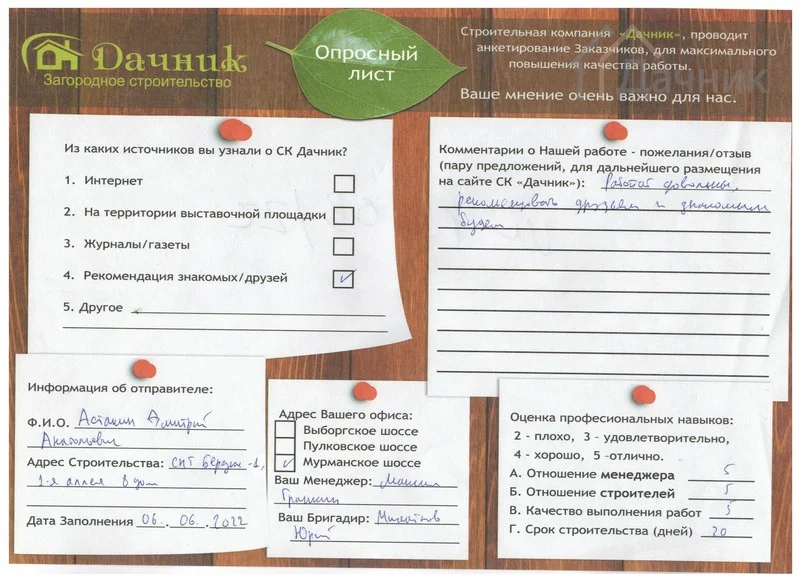 Дачник
Загородное строительство
Опросный
лист
Строительная компания «Дачник», проводит
анкетирование Заказчиков, для максимального
повышения качества работы.
Дачник
Ваше мнение очень важно для нас.
Из каких источников вы узнали о СК Дачник?
1. Интернет
2. На территории выставочной площадки
3. Журналы/газеты
4. Рекомендация знакомых/друзей ✓
5. Другое
Комментарии о Нашей работе - пожелания/отзыв
(пару предложений, для дальнейшего размещения
на сайте СК «Дачник»): Работой довольны,
рекомендовать друзьям и знакомым
будем
Информация об отправителе:
Ф.И.О. Дмитрий
Анатольевич
Адрес Строительства: СНТ -1,
1-я аллея 8 дом
Дата Заполнения 06. 06. 2022
Адрес Вашего офиса:
Выборгское шоссе
Пулковское шоссе
✓ Мурманское шоссе
Ваш Менеджер: Максим
Ваш Бригадир:
Юрий
Оценка професиональных навыков:
2 - плохо, 3 - удовлетворительно,
4 - хорошо, 5 -отлично.
А. Отношение менеджера 5
Б. Отношение строителей 5
В. Качество выполнения работ 5
Г. Срок строительства (дней) 20